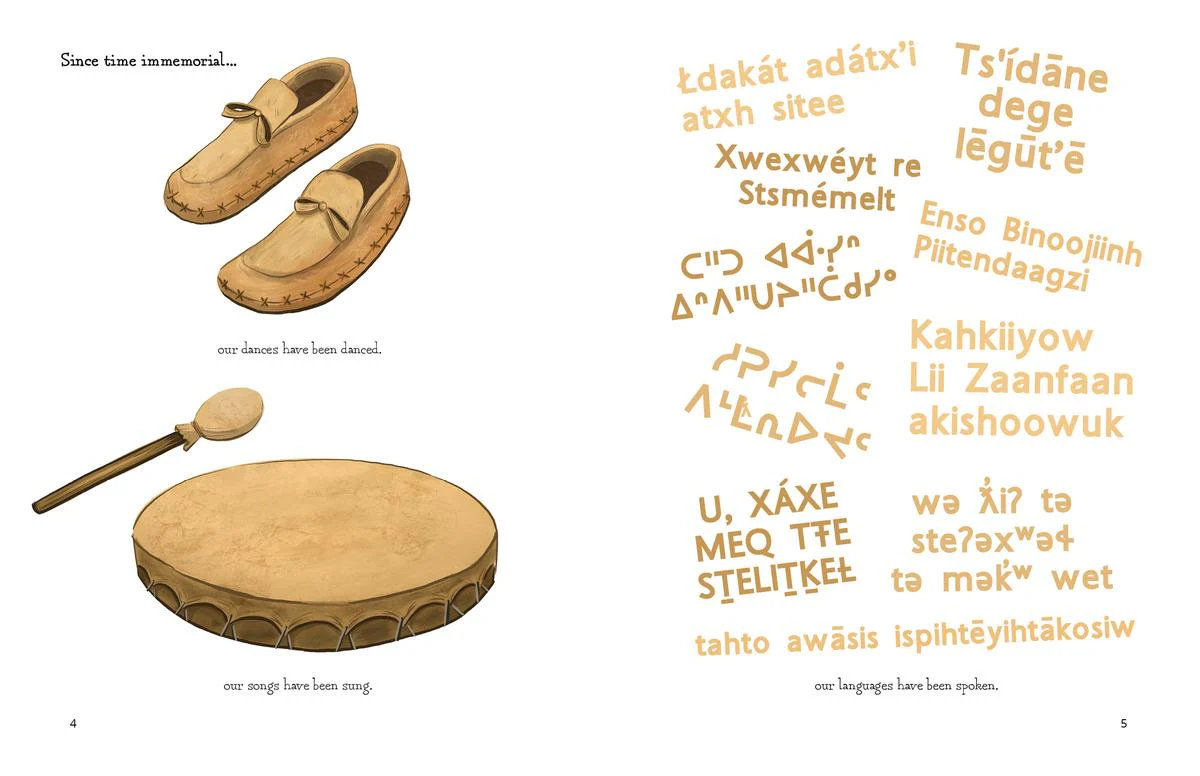 Since time immemorial...
our dances have been danced.
our songs have been sung.
4
Łdakát adátx’i
atxh sitee
Ts'ídāne
dege
lēgūt’ē
Xwexwéyt re
Stsmémelt
Enso Binoojiinh
Piitendaagzi
ᑕᐦᑐ ᐊᐚᓯᐢ
ᐃᐢᐱᐦᑌᔨᐦᑖᑯᓯᐤ
Kahkiiyow
Lii Zaanfaan
akishoowuk
U, XÁXE
MEQ TŦE
ST̲ELIT̲ḴEȽ
wə ƛ̓iʔ tə
steʔəxʷəɬ
tə mək̓ʷ wet
tahto awāsis ispihtēyihtākosiw
our languages have been spoken.
5